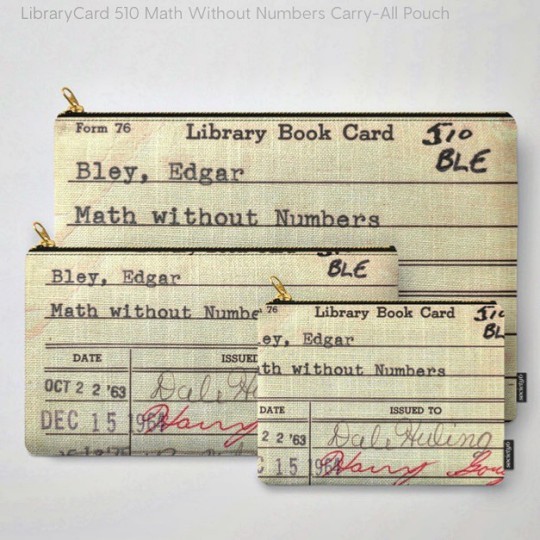 LibraryCard 510 Math Without Numbers Carry-All Pouch
Form 76 Library Book Card 510
BLE
Bley, Edgar
Math without Numbers
BLE
Bley, Edgar
Math without Numbe
DATE ISSUED
OCT 22 '63 Dale
DEC 15 1964 Harry
76 Library Book Card 510
BL
ey, Edgar
th without Numbers
DATE ISSUED TO
22 '63 Dale Huling
15 1964 Harry
society6
society6